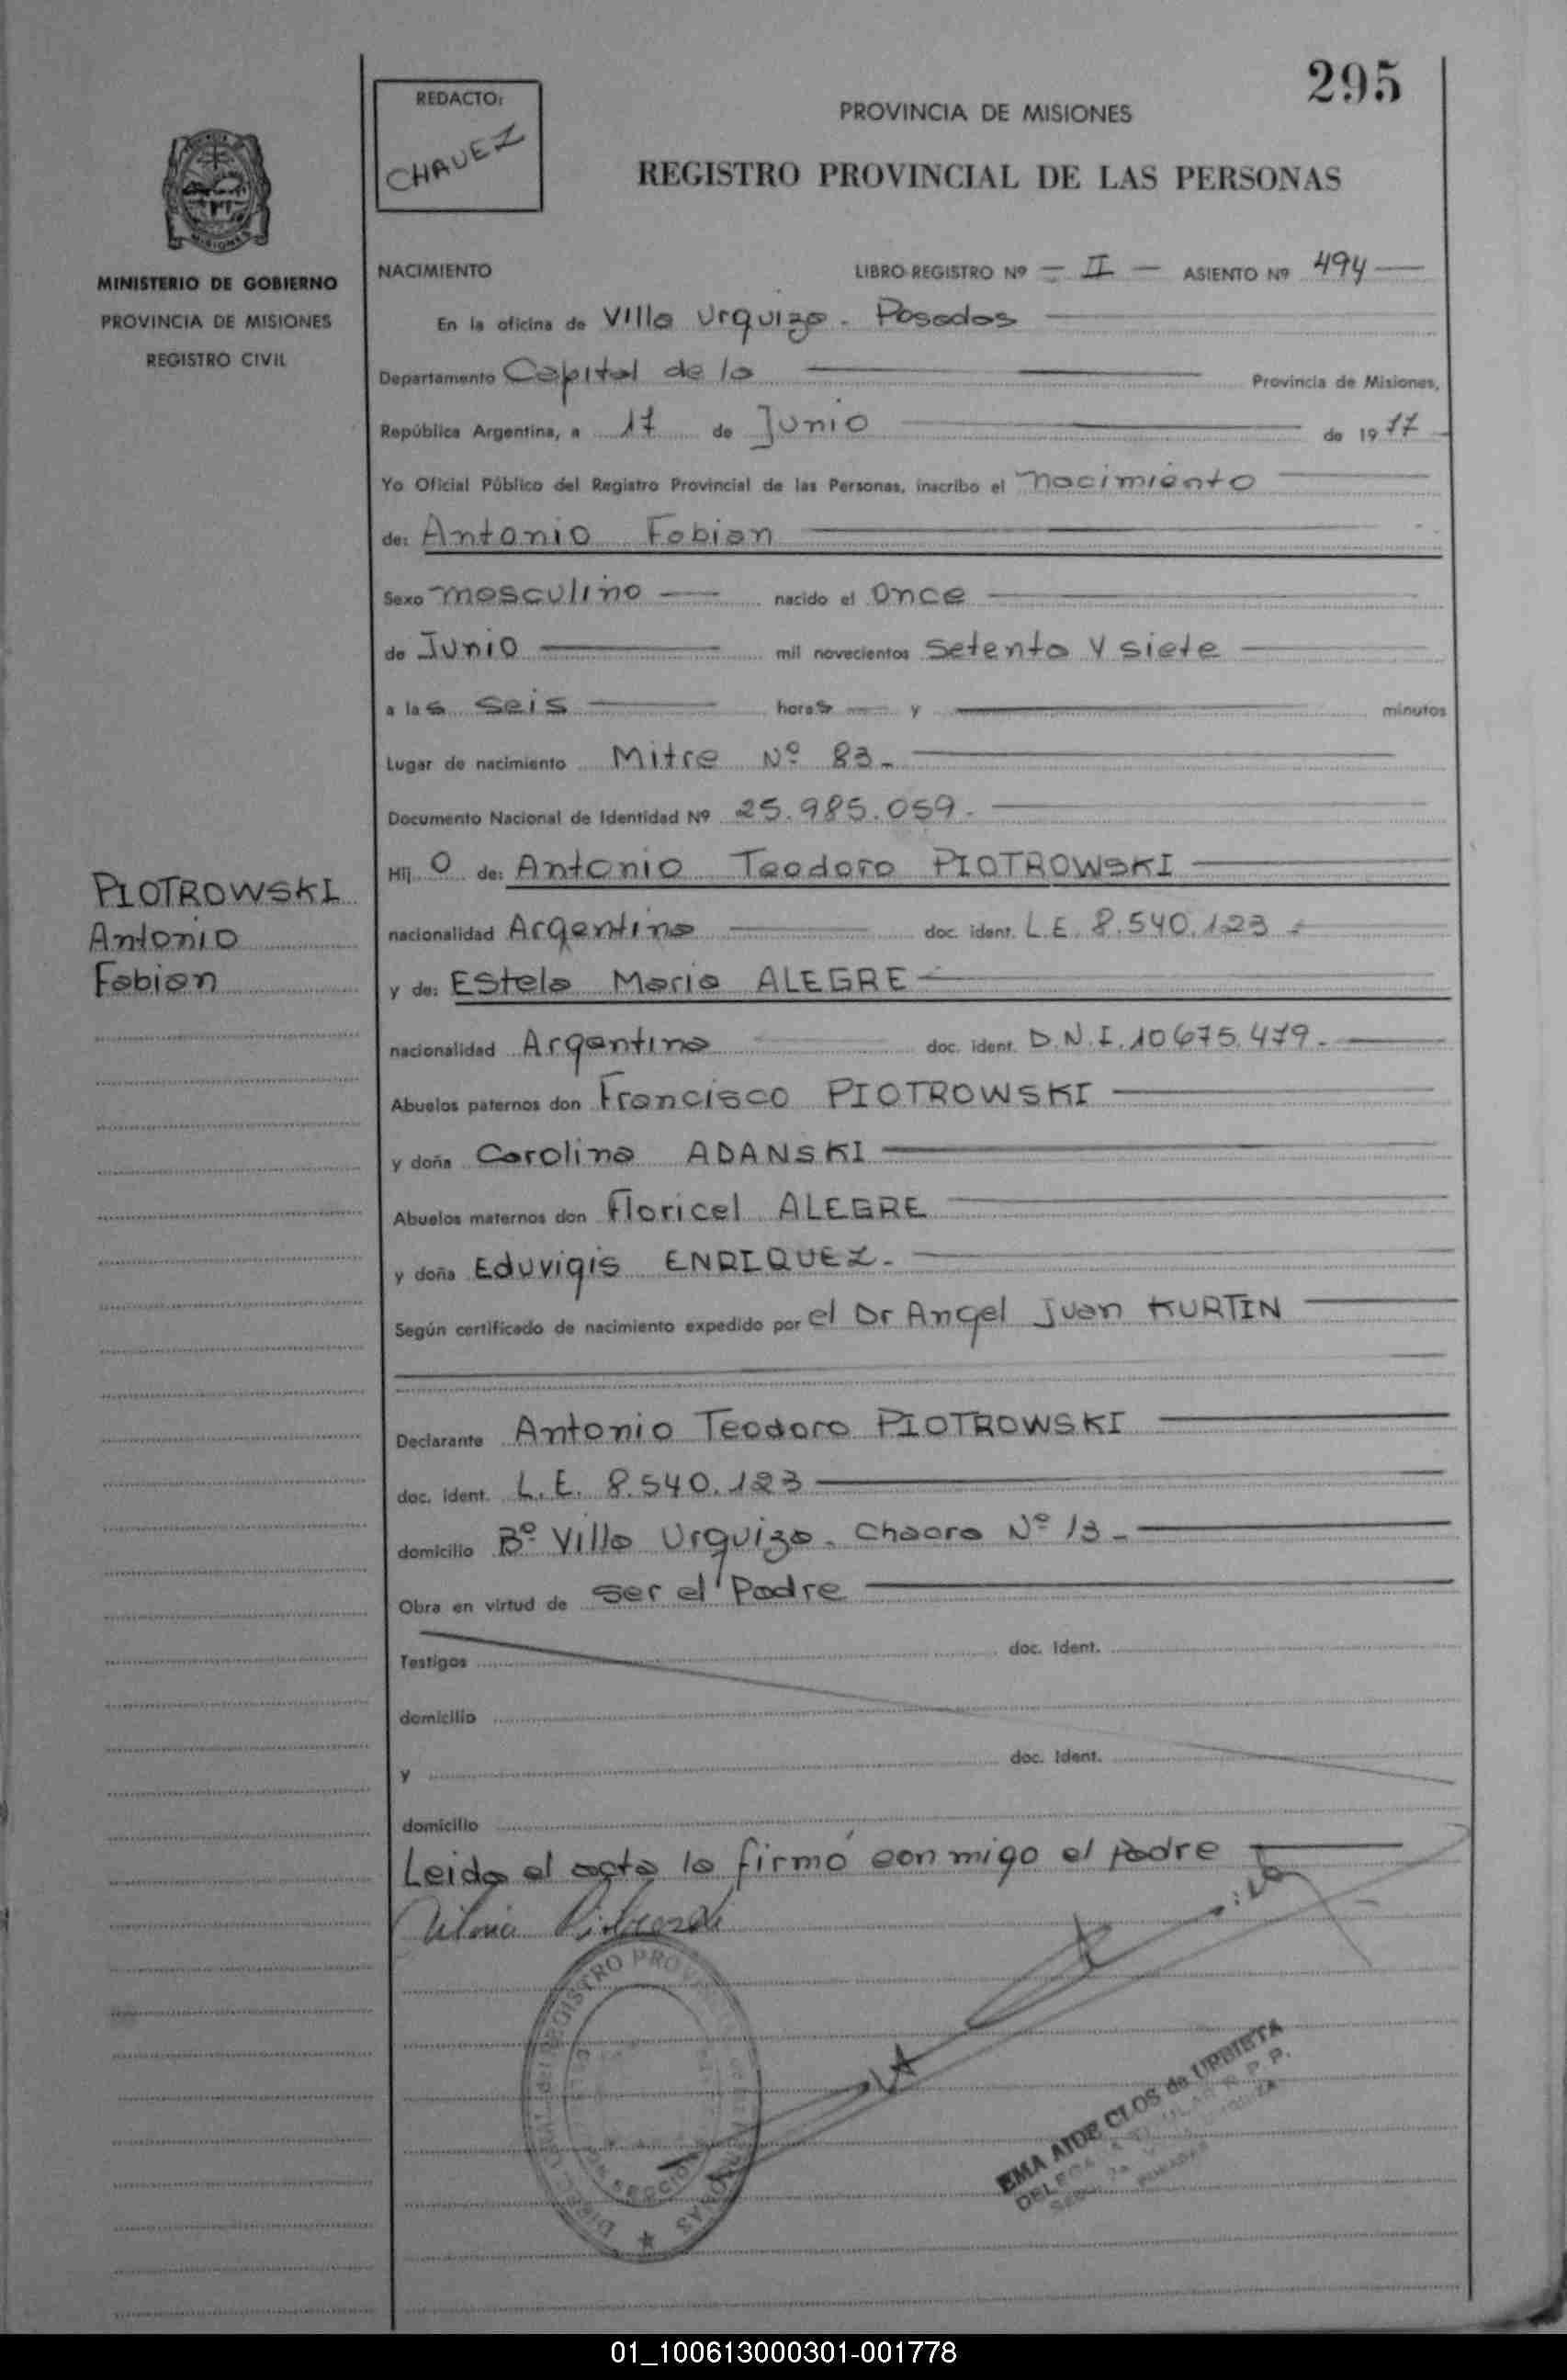 295
REDACTO:
CHAVEZ
PROVINCIA DE MISIONES
REGISTRO PROVINCIAL DE LAS PERSONAS
MISIONES
MINISTERIO DE GOBIERNO
PROVINCIA DE MISIONES
REGISTRO CIVIL
NACIMIENTO LIBRO REGISTRO Nº - II - ASIENTO Nº 494
En la oficina de Villa Urquiza - Posadas
Departamento Capital de la Provincia de Misiones,
República Argentina, a 17 de Junio de 1977
Yo Oficial Público del Registro Provincial de las Personas, inscribo el nacimiento
de: Antonio Fabian
Sexo masculino nacido el once
de Junio mil novecientos setenta y siete
a las seis horas y minutos
Lugar de nacimiento Mitre Nº 83-
Documento Nacional de Identidad Nº 25.985.059-
Hij o de: Antonio Teodoro PIOTROWSKI
nacionalidad Argentina doc. ident. L.E. 8.540.123-
y de: Estela Maria ALEGRE
nacionalidad Argentina doc. ident. D.N.I. 10675.479-
Abuelos paternos don Francisco PIOTROWSKI
y doña Carolina ADANSKI
Abuelos maternos don Floricel ALEGRE
y doña Eduvigis ENRIQUEZ-
Según certificado de nacimiento expedido por el Dr Angel Juan KURTIN
Declarante Antonio Teodoro PIOTROWSKI
doc. ident. L.E. 8.540.123
domicilio Bº Villa Urquiza - Chacra Nº 13-
Obra en virtud de ser el Padre
Testigos doc. Ident.
domicilio
y doc. Ident.
domicilio
Leida el acta la firmó con migo el padre
PIOTROWSKI
Antonio
Fabian
EMA AIDE CLOS de URBIETA
01_100613000301-001778